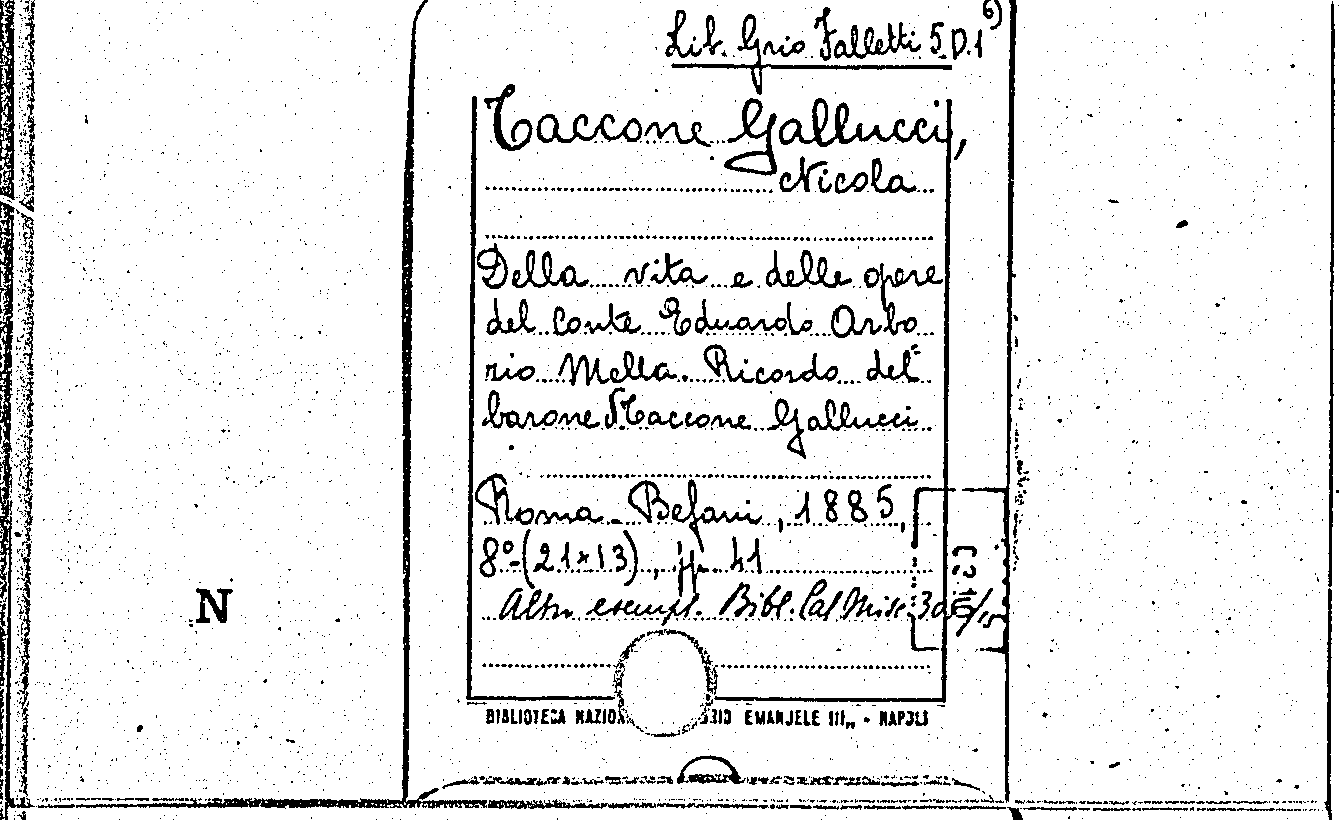 Lib. Grio Falletti 5.D.1 6)
Taccone Gallucci,
Nicola
Della vita e delle opere
del Conte Eduardo Arbo
rio Mella. Ricordo del
barone N Taccone Gallucci
Roma. Befani, 1885,
8º (21x13), pp. 41
Altro esempl. Bibl. Cal Misc.
N
BIBLIOTECA NAZIO EMANUELE III„ - NAPOLI